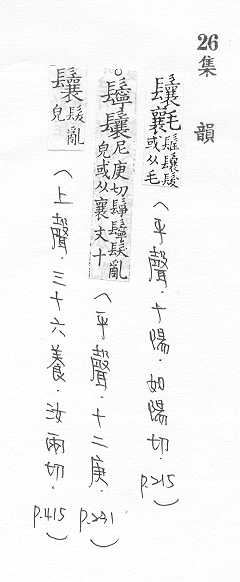 26 集韻
鬤 鬤髮或从毛（平聲．十陽．如陽切．p.215）
鬡鬤 尼庚切鬇鬡髮亂皃或从襄文十（平聲．十二庚．p.231）
鬤 髮亂皃（上聲．三十六養．汝兩切．p.415）